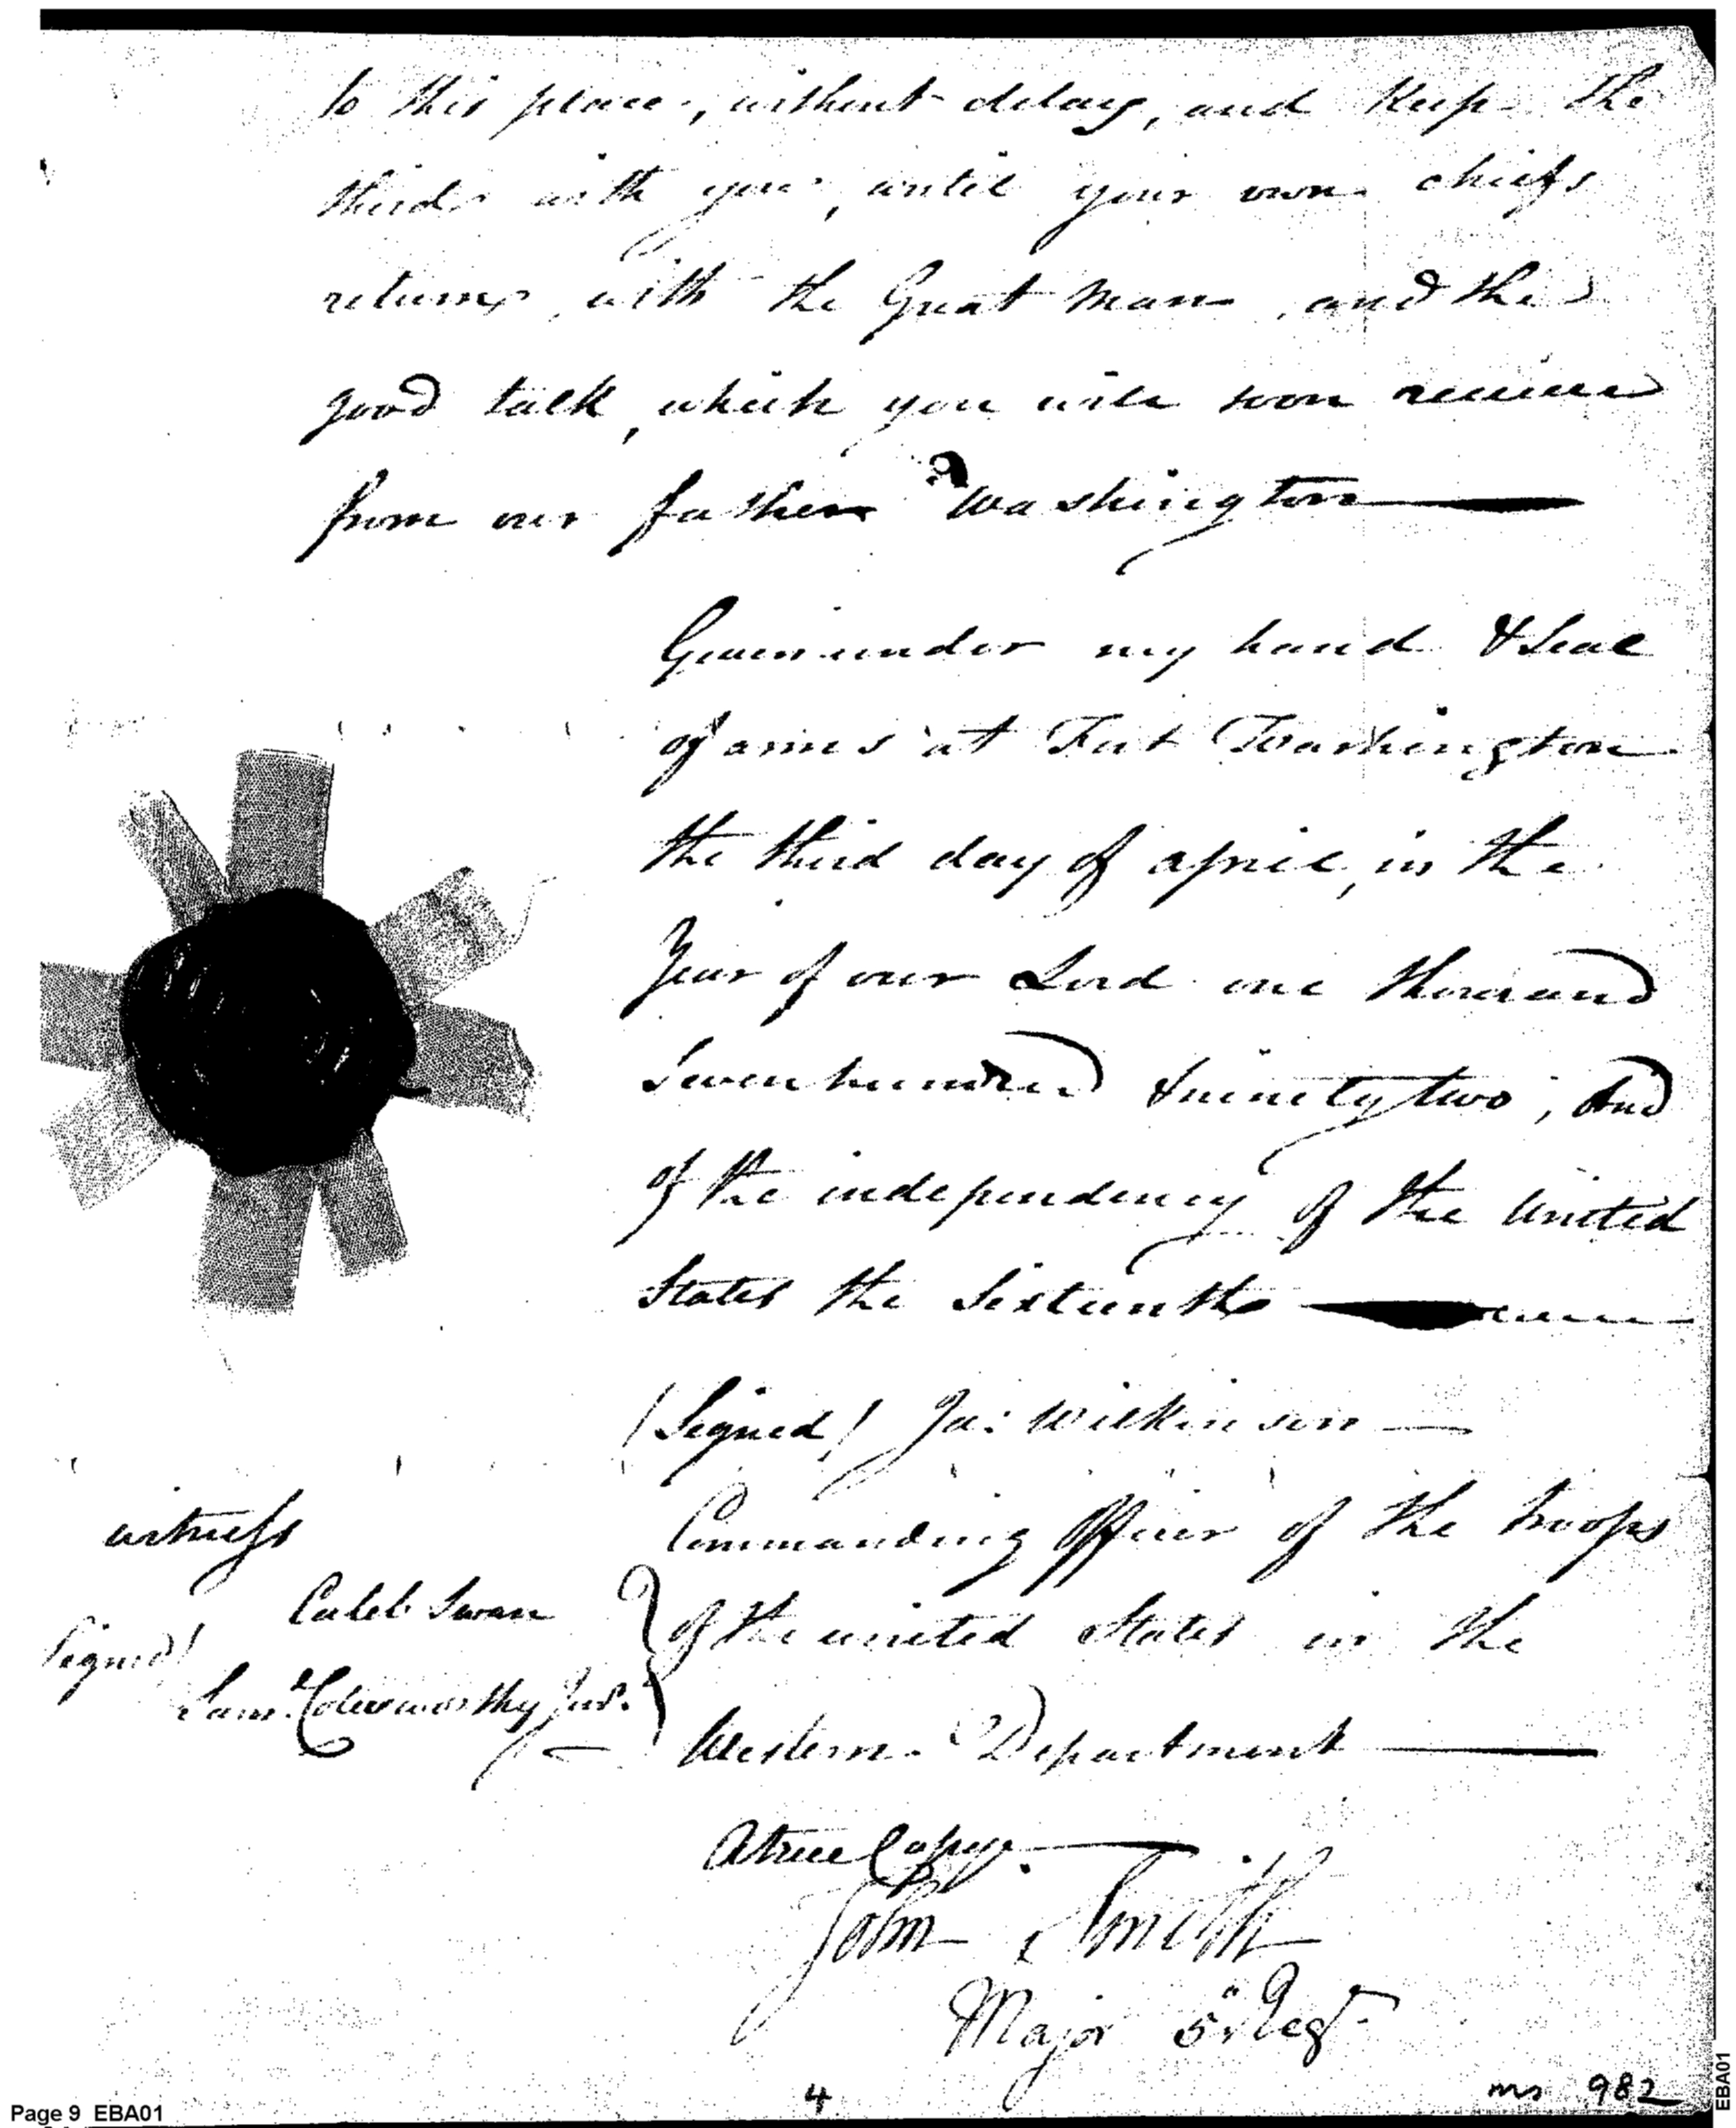 to this place, without delay, and keep the
third with you, until your own chiefs
return, with the Great Man, and the
good talk, which you will soon receive
from our father Washington
Given under my hand & Seal
of arms at Fort Washington
the third day of april, in the
Year of our Lord one thousand
Seven hundred & ninety two, And
of the independency of the United
States the Sixteenth
(Signed) Ja: Wilkinson
Commanding Officer of the troops
of the united States in the
Western Department
witness
Caleb Swan
Signed)
Saml. Colesworthy Junr.
A true Copy
John Smith
Major 5th Regt.
4
ms 982
Page 9 EBA01
EBA01